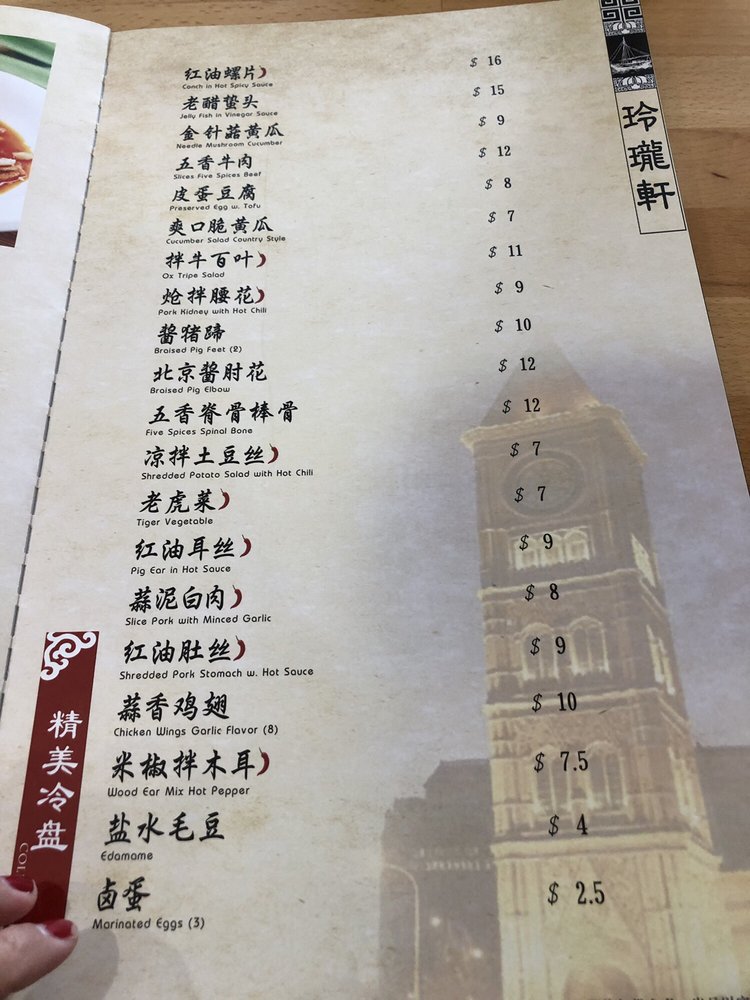 玲瓏軒
红油螺片
$ 16
Conch in Hot Spicy Sauce
老醋蛰头
$ 15
Jelly Fish in Vinegar Sauce
金针菇黄瓜
$ 9
Needle Mushroom Cucumber
五香牛肉
$ 12
Slices Five Spices Beef
皮蛋豆腐
$ 8
Preserved Egg w. Tofu
爽口脆黄瓜
$ 7
Cucumber Salad Country Style
拌牛百叶
$ 11
Ox Tripe Salad
炝拌腰花
$ 9
Pork Kidney with Hot Chili
酱猪蹄
$ 10
Braised Pig Feet (2)
北京酱肘花
$ 12
Braised Pig Elbow
五香脊骨棒骨
$ 12
Five Spices Spinal Bone
凉拌土豆丝
$ 7
Shredded Potato Salad with Hot Chili
老虎菜
$ 7
Tiger Vegetable
红油耳丝
$ 9
Pig Ear in Hot Sauce
蒜泥白肉
$ 8
Slice Pork with Minced Garlic
红油肚丝
$ 9
Shredded Pork Stomach w. Hot Sauce
蒜香鸡翅
$ 10
Chicken Wings Garlic Flavor (8)
米椒拌木耳
$ 7.5
Wood Ear Mix Hot Pepper
盐水毛豆
$ 4
Edamame
卤蛋
$ 2.5
Marinated Eggs (3)
精美冷盘